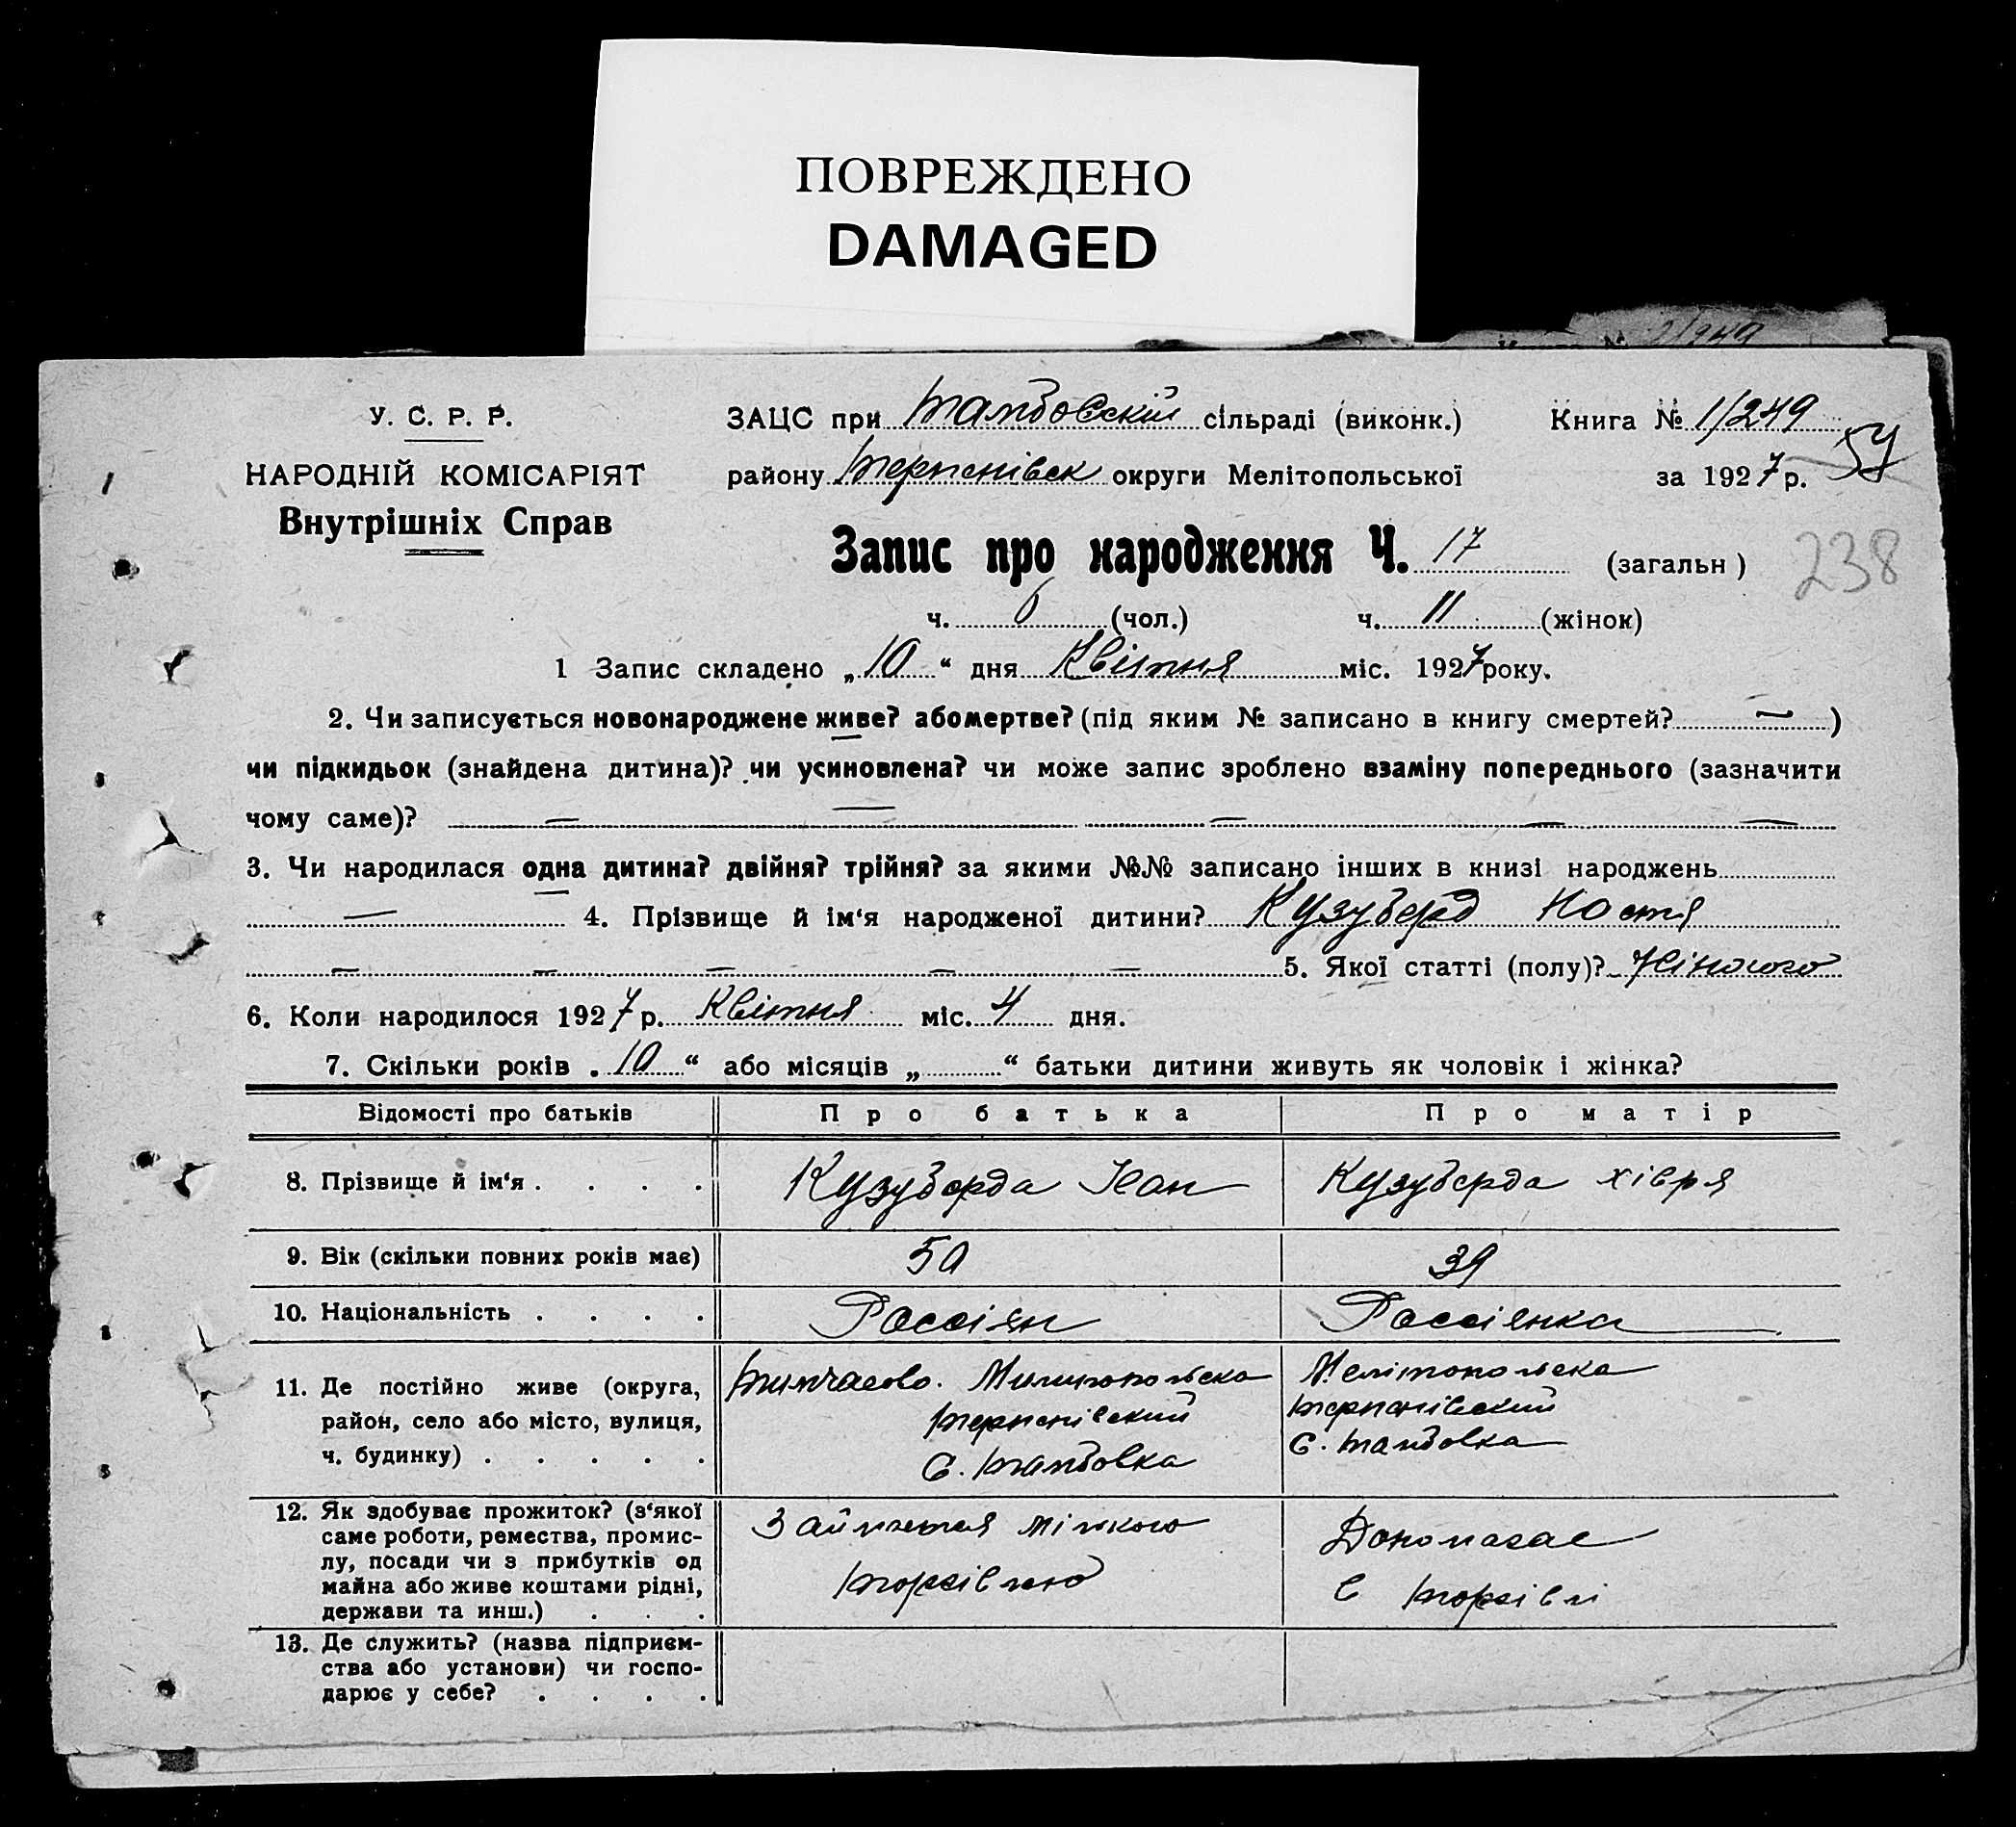 ПОВРЕЖДЕНО
DAMAGED
У. С. Р. Р.
НАРОДНІЙ КОМІСАРІЯТ
Внутрішніх Справ
ЗАЦС при Тамбовскій сільраді (виконк.) Книга № 1/249
району Терпенівск округи Мелітопольської за 1927 р.
Запис про народження Ч. 17 (загальн)
238
ч. 6 (чол.) ч. 11 (жінок)
1 Запис складено „ 10 “ дня Квітня міс. 1927 року.
2. Чи записується новонароджене живе? або мертве? (під яким № записано в книгу смертей? — )
чи підкидьок (знайдена дитина)? чи усиновлена? чи може запис зроблено взаміну попереднього (зазначити
чому саме)? — — — — —
3. Чи народилася одна дитина? двійня? трійня? за якими №№ записано інших в книзі народжень
— 4. Прізвище й ім‘я народженої дитини? Кузуберд Настя
— — — — — 5. Якої статті (полу)? Жіночого
6. Коли народилося 1927 р. Квітня міс. 4 дня.
7. Скільки років „ 10 “ або місяців „ “ батьки дитини живуть як чоловік і жінка?
Відомості про батьків Про батька Про матір
8. Прізвище й ім‘я . . . . Кузуберда Іван Кузуберда Хівря
9. Вік (скільки повних років має) 50 39
10. Національність . . . . Россіян Россіянка
11. Де постійно живе (округа, район, село або місто, вулиця, ч. будинку) . . . . .
тимчасово. Милитопольска
Терпенівский
С. Тамбовка
Мелітопольска
Терпенівский
С. Тамбовка
12. Як здобуває прожиток? (з‘якої саме роботи, ремества, промислу, посади чи з прибутків од майна або живе коштами рідні, держави та инш.) . . .
Займаетея мілкою
торгівлею
Допомагае
в торгівлі
13. Де служить? (назва підприємства або установи) чи господарює у себе? . . . .